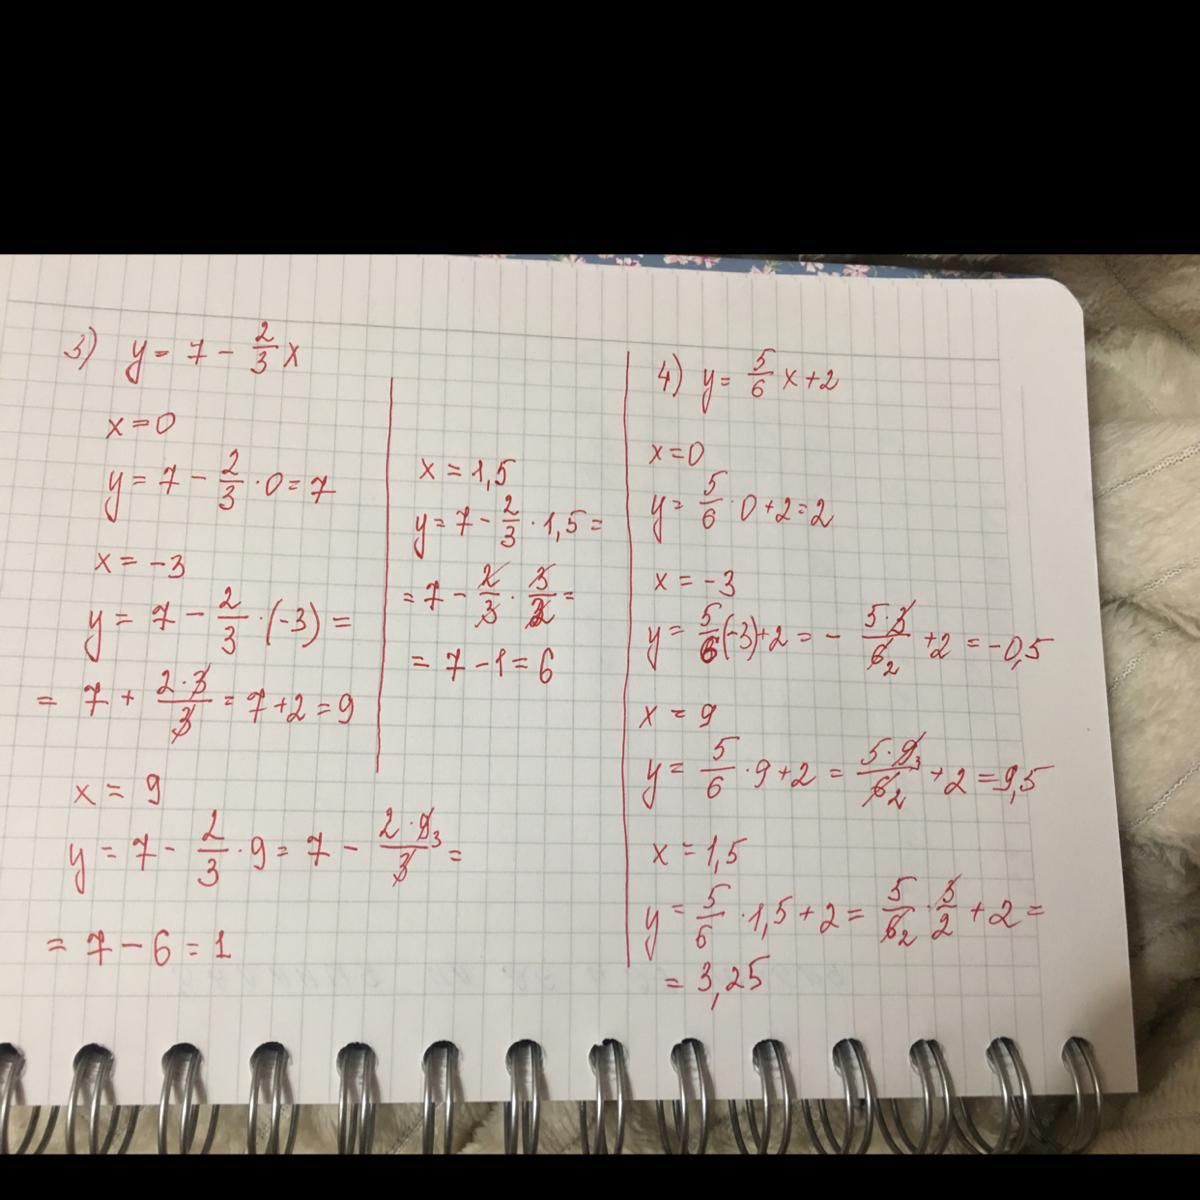 3) y = 7 - 2/3 x
x = 0
y = 7 - 2/3 · 0 = 7
x = -3
y = 7 - 2/3 · (-3) =
= 7 + 2·3/3 = 7 + 2 = 9
x = 9
y = 7 - 2/3 · 9 = 7 - 2·9 3/3 =
= 7 - 6 = 1
x = 1,5
y = 7 - 2/3 · 1,5 =
= 7 - 2/3 · 3/2 =
= 7 - 1 = 6
4) y = 5/6 x + 2
x = 0
y = 5/6 · 0 + 2 = 2
x = -3
y = 5/6 (-3) + 2 = - 5·3/6 2 + 2 = -0,5
x = 9
y = 5/6 · 9 + 2 = 5·9 3/6 2 + 2 = 9,5
x = 1,5
y = 5/6 · 1,5 + 2 = 5/6 2 · 3/2 + 2 =
= 3,25